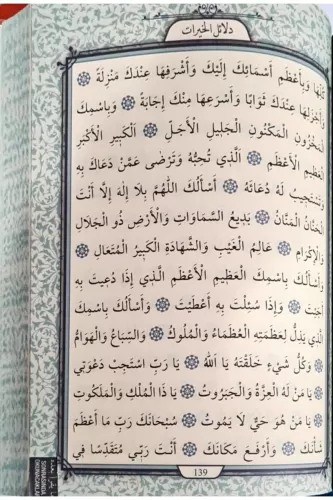 دلائل الخيرات
كُلِّهَا وَبِأَعْظَمِ أَسْمَائِكَ إِلَيْكَ وَأَشْرَفِهَا عِنْدَكَ مَنْزِلَةً
وَأَجْزَلِهَا عِنْدَكَ ثَوَابًا وَأَسْرَعِهَا مِنْكَ إِجَابَةً وَبِاسْمِكَ
الْمَخْزُونِ الْمَكْنُونِ الْجَلِيلِ الْأَجَلِّ الْكَبِيرِ الْأَكْبَرِ
الْعَظِيمِ الْأَعْظَمِ الَّذِي تُحِبُّهُ وَتَرْضَى عَمَّنْ دَعَاكَ بِهِ
وَتَسْتَجِيبُ لَهُ دُعَائَهُ أَسْأَلُكَ اللَّهُمَّ بِلَا إِلَهَ إِلَّا أَنْتَ
الْحَنَّانُ الْمَنَّانُ بَدِيعُ السَّمَاوَاتِ وَالْأَرْضِ ذُو الْجَلَالِ
وَالْإِكْرَامِ عَالِمُ الْغَيْبِ وَالشَّهَادَةِ الْكَبِيرُ الْمُتَعَالِ
وَأَسْأَلُكَ بِاسْمِكَ الْعَظِيمِ الْأَعْظَمِ الَّذِي إِذَا دُعِيتَ بِهِ
أَجَبْتَ وَإِذَا سُئِلْتَ بِهِ أَعْطَيْتَ وَأَسْأَلُكَ بِاسْمِكَ
الَّذِي يَذِلُّ لِعَظَمَتِهِ الْعُظَمَاءُ وَالْمُلُوكُ وَالسِّبَاعُ وَالْهَوَامُّ
وَكُلُّ شَيْءٍ خَلَقْتَهُ يَا اَللّٰهُ يَا رَبِّ اسْتَجِبْ دَعْوَتِي
يَا مَنْ لَهُ الْعِزَّةُ وَالْجَبَرُوتُ يَا ذَا الْمُلْكِ وَالْمَلَكُوتِ
يَا مَنْ هُوَ حَيٌّ لَا يَمُوتُ سُبْحَانَكَ رَبِّ مَا أَعْظَمَ
شَأْنَكَ وَأَرْفَعَ مَكَانَكَ أَنْتَ رَبِّي مُتَقَدِّسًا فِي
139